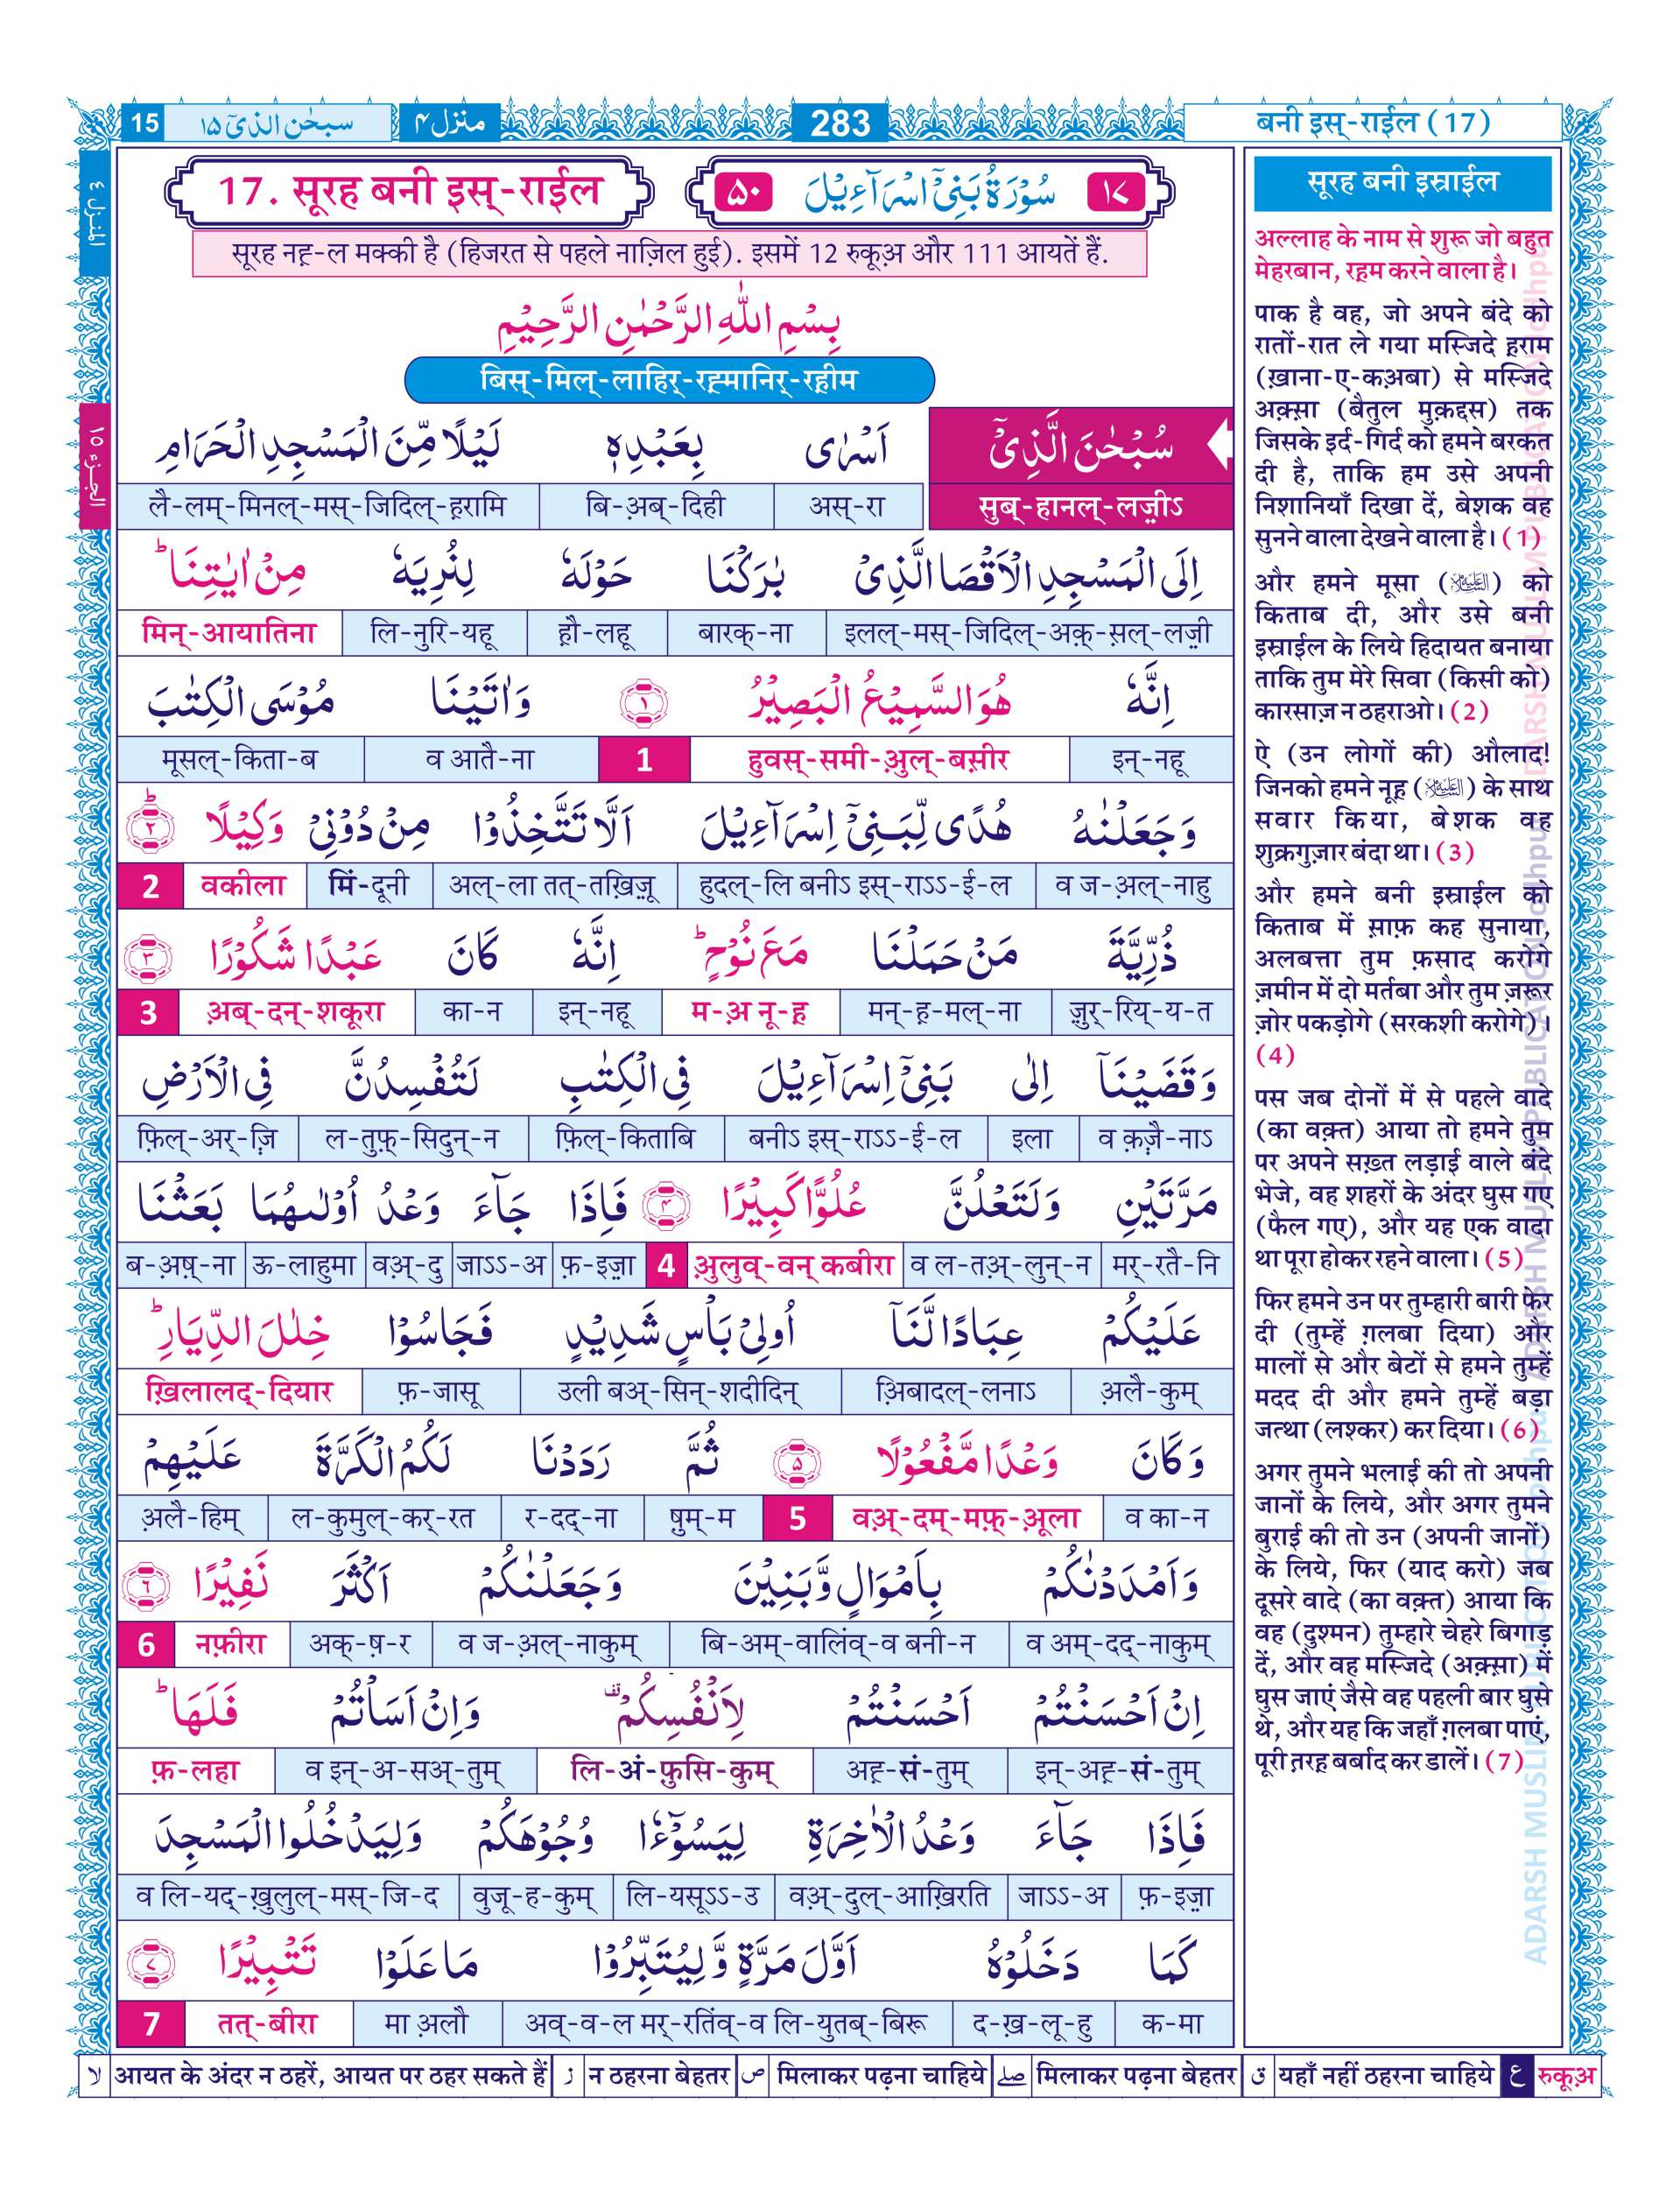 15 سبحٰن الذیٓ ۱۵ منزل۴ 283 बनी इस्-राईल (17)
المنزل ٤
الجزء ١٥
17. सूरह बनी इस्-राईल
۱۷ سُوْرَةُ بَنِیْٓ اِسْرَآءِیْلَ ۵۰
सूरह नह़-ल मक्की है (हिजरत से पहले नाज़िल हुई). इसमें 12 रुकूअ़ और 111 आयतें हैं.
بِسْمِ اللّٰهِ الرَّحْمٰنِ الرَّحِیْمِ
बिस्-मिल्-लाहिर्-रह़्मानिर्-रह़ीम
سُبْحٰنَ الَّذِیْٓ اَسْرٰی بِعَبْدِهٖ لَیْلًا مِّنَ الْمَسْجِدِ الْحَرَامِ
लै-लम्-मिनल्-मस्-जिदिल्-ह़रामि बि-अ़ब्-दिही अस्-रा सुब्-हानल्-लज़ीऽ
اِلَی الْمَسْجِدِ الْاَقْصَا الَّذِیْ بٰرَكْنَا حَوْلَهٗ لِنُرِیَهٗ مِنْ اٰیٰتِنَا ؕ
मिन्-आयातिना लि-नुरि-यहू ह़ौ-लहू बारक्-ना इलल्-मस्-जिदिल्-अक़्-स़ल्-लज़ी
اِنَّهٗ هُوَ السَّمِیْعُ الْبَصِیْرُ ۱ وَاٰتَیْنَا مُوْسَی الْكِتٰبَ
मूसल्-किता-ब व आतै-ना 1 हुवस्-समी-अ़ुल्-बस़ीर इन्-नहू
وَجَعَلْنٰهُ هُدًی لِّبَنِیْٓ اِسْرَآءِیْلَ اَلَّا تَتَّخِذُوْا مِنْ دُوْنِیْ وَكِیْلًا ؕ ۲
2 वकीला मिं-दूनी अल्-ला तत्-तख़िज़ू हुदल्-लि बनीऽ इस्-राऽऽ-ई-ल व ज-अ़ल्-नाहु
ذُرِّیَّةَ مَنْ حَمَلْنَا مَعَ نُوْحٍ ؕ اِنَّهٗ كَانَ عَبْدًا شَكُوْرًا ۳
3 अ़ब्-दन्-शकूरा का-न इन्-नहू म-अ़ नू-ह़ मन्-ह़-मल्-ना ज़ुर्-रिय्-य-त
وَقَضَیْنَآ اِلٰی بَنِیْٓ اِسْرَآءِیْلَ فِی الْكِتٰبِ لَتُفْسِدُنَّ فِی الْاَرْضِ
फ़िल्-अर्-ज़ि ल-तुफ़्-सिदुन्-न फ़िल्-किताबि बनीऽ इस्-राऽऽ-ई-ल इला व क़ज़ै-नाऽ
مَرَّتَیْنِ وَلَتَعْلُنَّ عُلُوًّا كَبِیْرًا ۴ فَاِذَا جَآءَ وَعْدُ اُوْلٰىهُمَا بَعَثْنَا
ब-अ़ष़्-ना ऊ-लाहुमा वअ़्-दु जाऽऽ-अ फ़-इज़ा 4 अ़ुलुव्-वन् कबीरा व ल-तअ़्-लुन्-न मर्-रतै-नि
عَلَیْكُمْ عِبَادًا لَّنَآ اُولِیْ بَاْسٍ شَدِیْدٍ فَجَاسُوْا خِلٰلَ الدِّیَارِ ؕ
ख़िलालद्-दियार फ़-जासू उली बअ्-सिन्-शदीदिन् अ़िबादल्-लनाऽ अ़लै-कुम्
وَكَانَ وَعْدًا مَّفْعُوْلًا ۵ ثُمَّ رَدَدْنَا لَكُمُ الْكَرَّةَ عَلَیْهِمْ
अ़लै-हिम् ल-कुमुल्-कर्-रत र-दद्-ना ष़ुम्-म 5 वअ़्-दम्-मफ़्-अ़ूला व का-न
وَاَمْدَدْنٰكُمْ بِاَمْوَالٍ وَّبَنِیْنَ وَجَعَلْنٰكُمْ اَكْثَرَ نَفِیْرًا ۶
6 नफ़ीरा अक्-ष़-र व ज-अ़ल्-नाकुम् बि-अम्-वालिंव्-व बनी-न व अम्-दद्-नाकुम्
اِنْ اَحْسَنْتُمْ اَحْسَنْتُمْ لِاَنْفُسِكُمْ ۫ وَاِنْ اَسَاْتُمْ فَلَهَا ؕ
फ़-लहा व इन्-अ-सअ्-तुम् लि-अं-फ़ुसि-कुम् अह़-सं-तुम् इन्-अह़-सं-तुम्
فَاِذَا جَآءَ وَعْدُ الْاٰخِرَةِ لِیَسُوْٓءٗا وُجُوْهَكُمْ وَلِیَدْخُلُوا الْمَسْجِدَ
व लि-यद्-ख़ुलुल्-मस्-जि-द वुजू-ह-कुम् लि-यसूऽऽ-उ वअ़्-दुल्-आख़िरति जाऽऽ-अ फ़-इज़ा
كَمَا دَخَلُوْهُ اَوَّلَ مَرَّةٍ وَّلِیُتَبِّرُوْا مَا عَلَوْا تَتْبِیْرًا ۷
7 तत्-बीरा मा अ़लौ अव्-व-ल मर्-रतिंव्-व लि-युतब्-बिरू द-ख़-लू-हु क-मा
सूरह बनी इस्राईल
अल्लाह के नाम से शुरू जो बहुत
मेहरबान, रह़म करने वाला है।
पाक है वह, जो अपने बंदे को
रातों-रात ले गया मस्जिदे ह़राम
(ख़ाना-ए-कअ़बा) से मस्जिदे
अक़्स़ा (बैतुल मुक़द्दस) तक
जिसके इर्द-गिर्द को हमने बरकत
दी है, ताकि हम उसे अपनी
निशानियाँ दिखा दें, बेशक वह
सुनने वाला देखने वाला है। (1)
और हमने मूसा (عليه السلام) को
किताब दी, और उसे बनी
इस्राईल के लिये हिदायत बनाया
ताकि तुम मेरे सिवा (किसी को)
कारसाज़ न ठहराओ। (2)
ऐ (उन लोगों की) औलाद!
जिनको हमने नूह़ (عليه السلام) के साथ
सवार किया, बेशक वह
शुक्रगुज़ार बंदा था। (3)
और हमने बनी इस्राईल को
किताब में स़ाफ़ कह सुनाया,
अलबत्ता तुम फ़साद करोगे
ज़मीन में दो मर्तबा और तुम ज़रूर
ज़ोर पकड़ोगे (सरकशी करोगे)।
(4)
पस जब दोनों में से पहले वादे
(का वक़्त) आया तो हमने तुम
पर अपने सख़्त लड़ाई वाले बंदे
भेजे, वह शहरों के अंदर घुस गए
(फैल गए), और यह एक वादा
था पूरा होकर रहने वाला। (5)
फिर हमने उन पर तुम्हारी बारी फेर
दी (तुम्हें ग़लबा दिया) और
मालों से और बेटों से हमने तुम्हें
मदद दी और हमने तुम्हें बड़ा
जत्था (लश्कर) कर दिया। (6)
अगर तुमने भलाई की तो अपनी
जानों के लिये, और अगर तुमने
बुराई की तो उन (अपनी जानों)
के लिये, फिर (याद करो) जब
दूसरे वादे (का वक़्त) आया कि
वह (दुश्मन) तुम्हारे चेहरे बिगाड़
दें, और वह मस्जिदे (अक़्स़ा) में
घुस जाएं जैसे वह पहली बार घुसे
थे, और यह कि जहाँ ग़लबा पाएं,
पूरी त़रह़ बर्बाद कर डालें। (7)
ADARSH MUSLIM PUBLICATION Jodhpur
لا आयत के अंदर न ठहरें, आयत पर ठहर सकते हैं ز न ठहरना बेहतर ص मिलाकर पढ़ना चाहिये صلے मिलाकर पढ़ना बेहतर ق यहाँ नहीं ठहरना चाहिये ع रुकूअ़